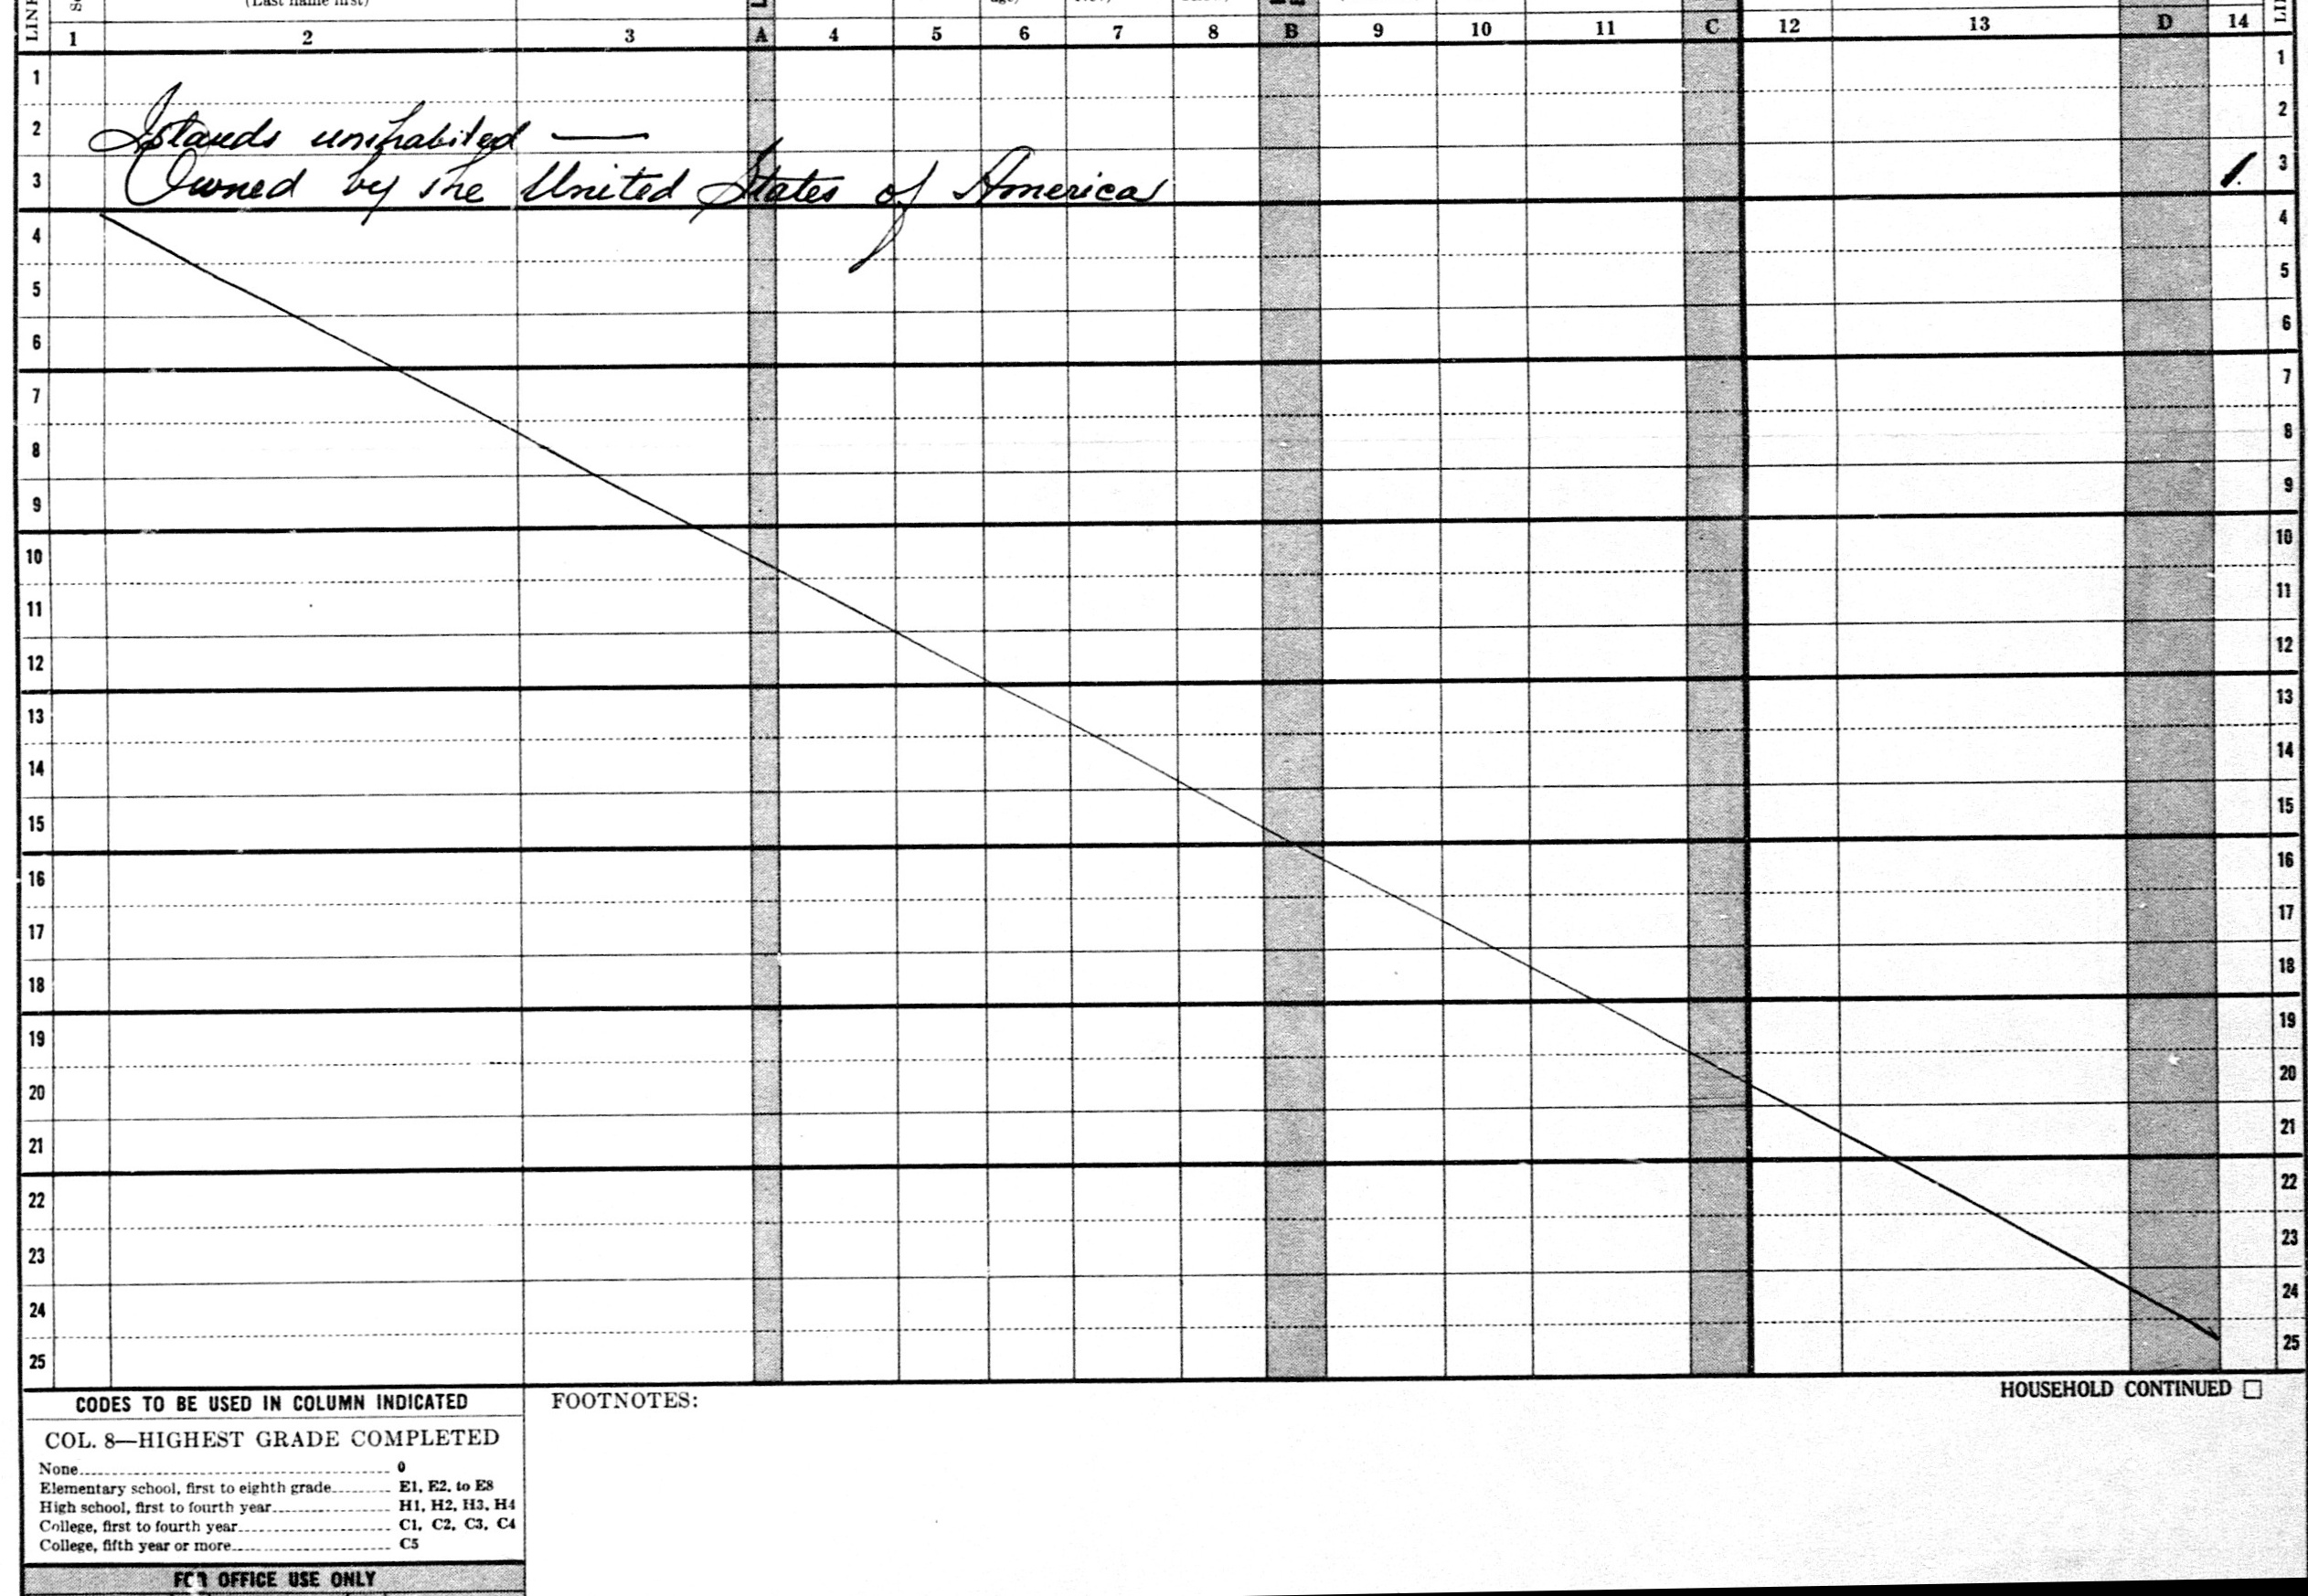 (Last name first)
LINE
1 2 3 A 4 5 6 7 8 B 9 10 11 C 12 13 D 14
1 1
2 Islands uninhabited — 2
3 Owned by the United States of America 1. 3
4 4
5 5
6 6
7 7
8 8
9 9
10 10
11 11
12 12
13 13
14 14
15 15
16 16
17 17
18 18
19 19
20 20
21 21
22 22
23 23
24 24
25 25
HOUSEHOLD CONTINUED
CODES TO BE USED IN COLUMN INDICATED
FOOTNOTES:
COL. 8—HIGHEST GRADE COMPLETED
None 0
Elementary school, first to eighth grade E1, E2, to E8
High school, first to fourth year H1, H2, H3, H4
College, first to fourth year C1, C2, C3, C4
College, fifth year or more C5
FOR OFFICE USE ONLY